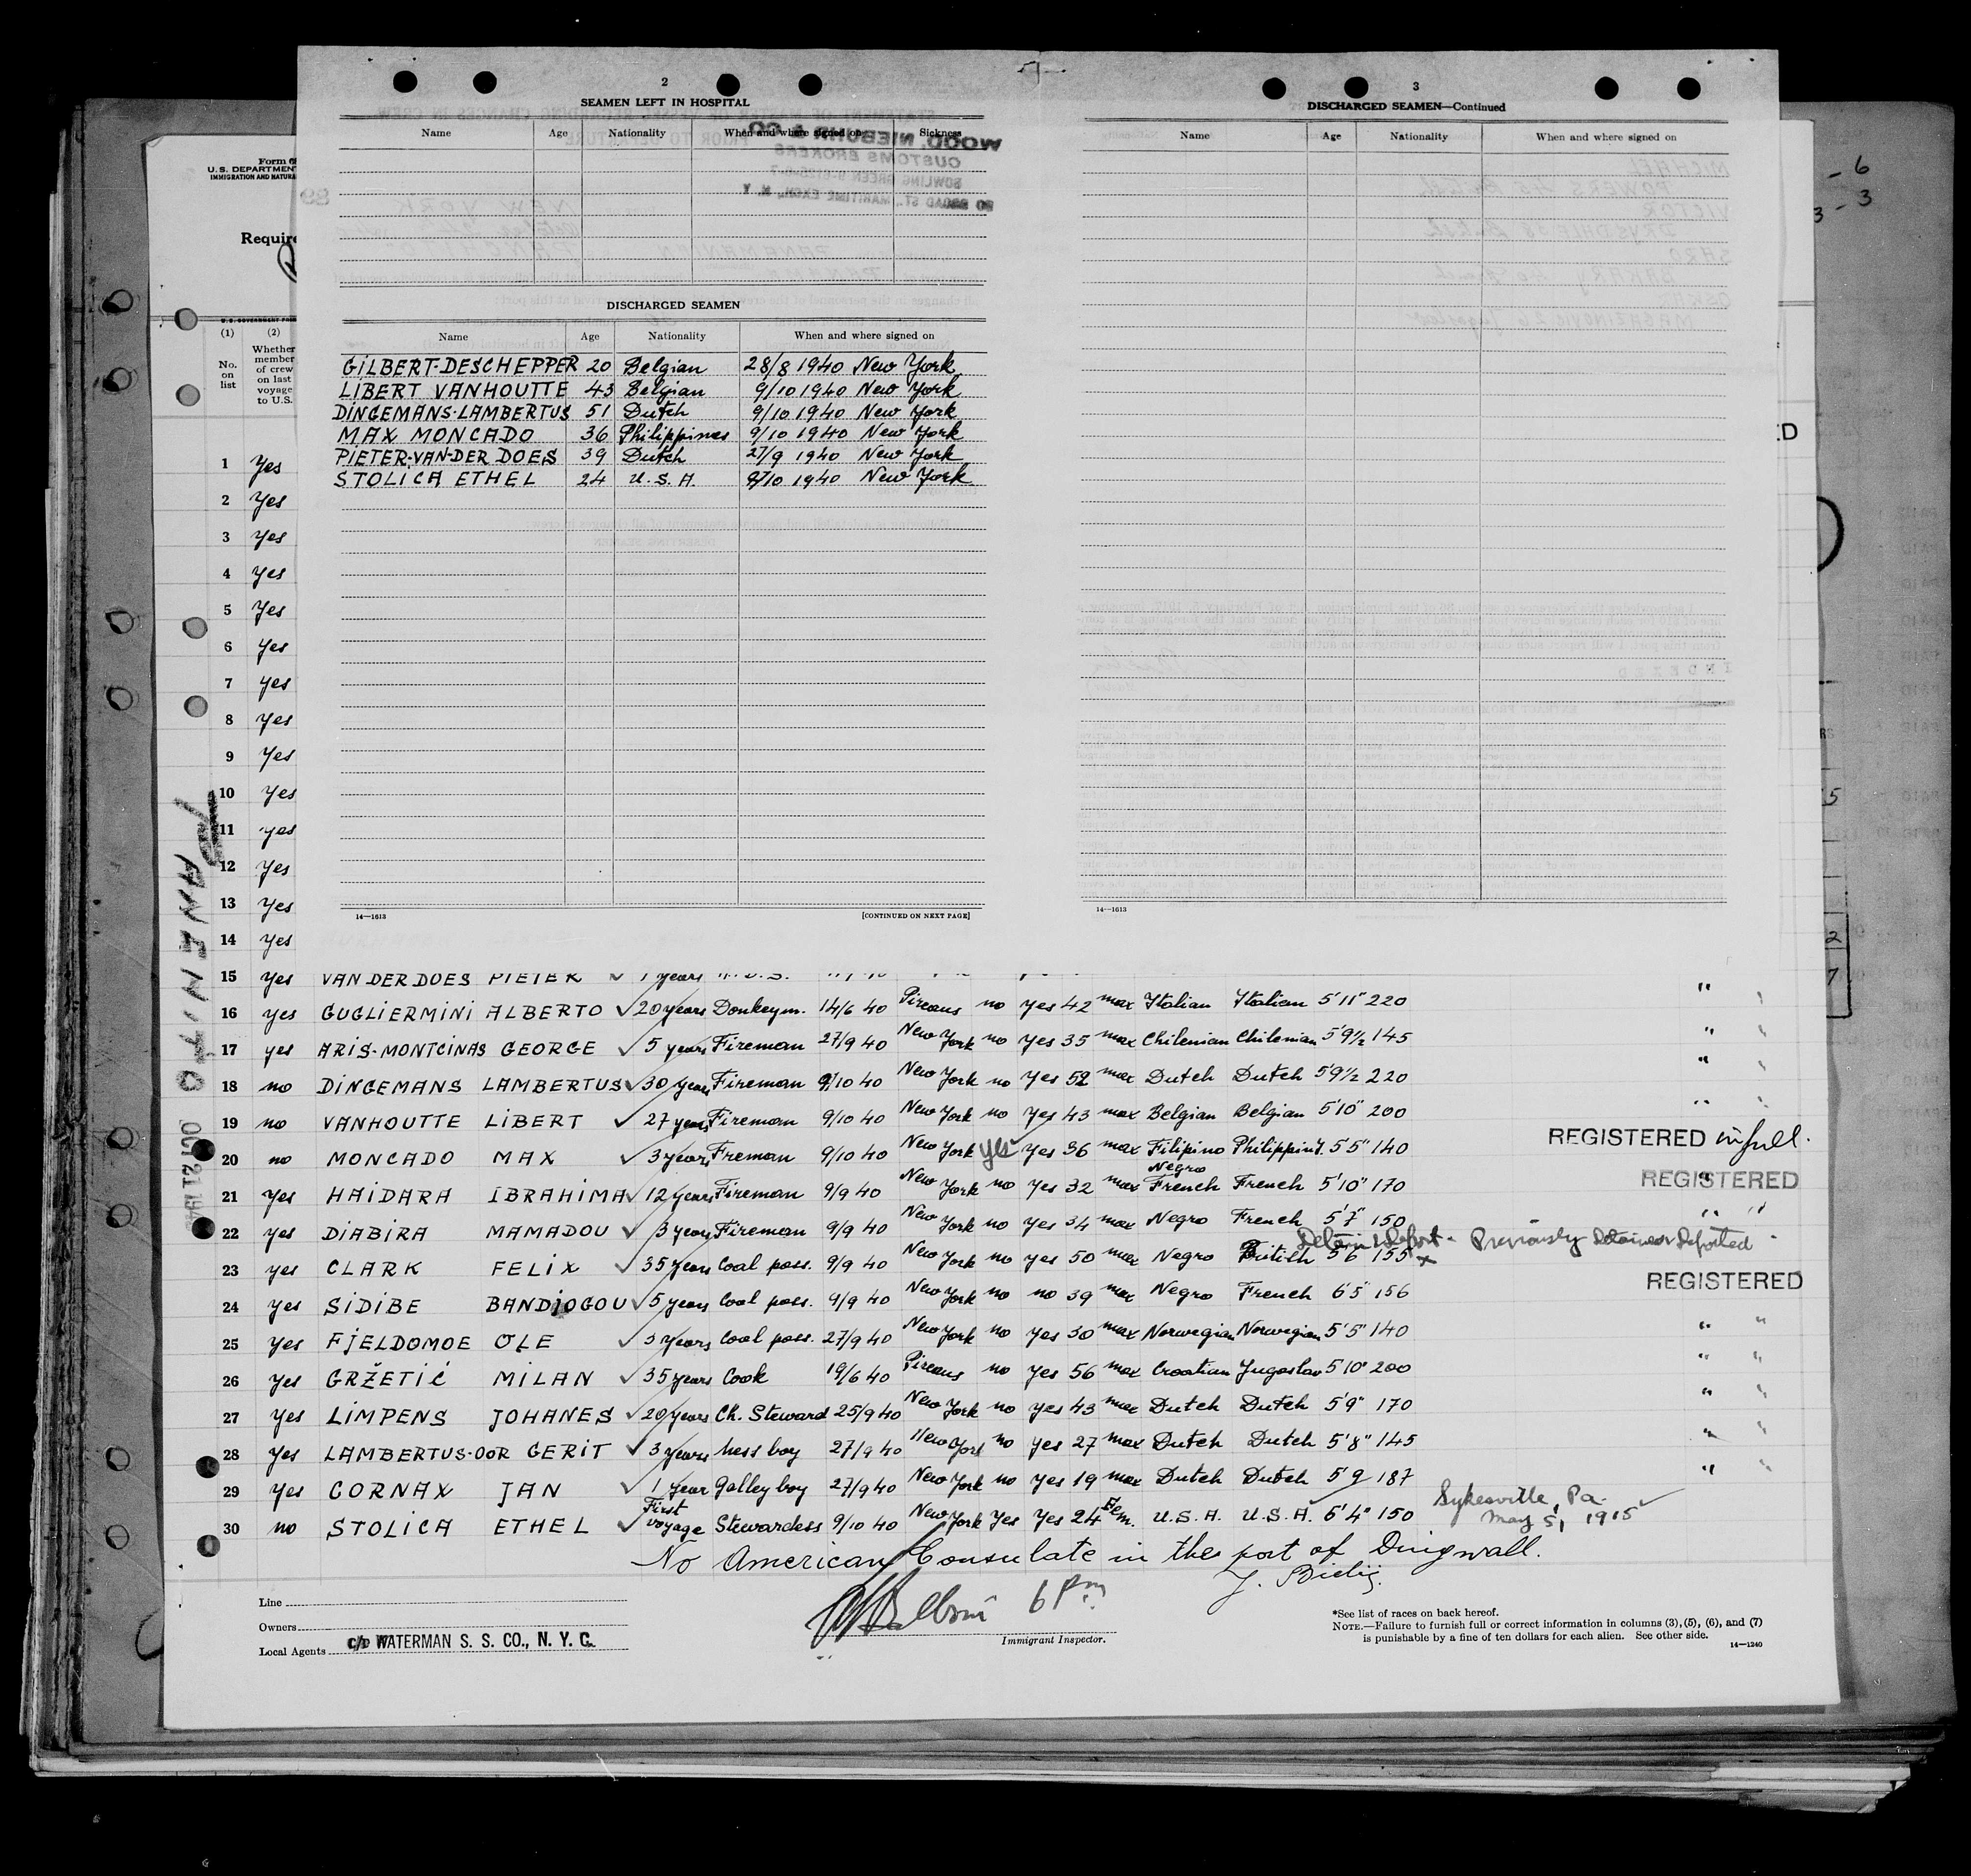 2
SEAMEN LEFT IN HOSPITAL
Name Age Nationality When and where signed on Sickness
WOOD, NIEBUHR & CO
CUSTOMS BROKERS
DISCHARGED SEAMEN
Name Age Nationality When and where signed on
GILBERT-DESCHEPPER 20 Belgian 28/8 1940 New York
LIBERT VANHOUTTE 43 Belgian 9/10 1940 New York
DINGEMANS-LAMBERTUS 51 Dutch 9/10 1940 New York
MAX MONCADO 36 Philippines 9/10 1940 New York
PIETER-VAN-DER DOES 39 Dutch 27/9 1940 New York
STOLICA ETHEL 24 U.S.A. 9/10 1940 New York
14—1613 [CONTINUED ON NEXT PAGE]
3
DISCHARGED SEAMEN—Continued
Name Age Nationality When and where signed on
14—1613
Form
U.S. DEPARTMEN
IMMIGRATION AND NATURA
Require
(1) (2)
No. on list
Whether member of crew on last voyage to U.S.
1 Yes
2 Yes
3 Yes
4 Yes
5 Yes
6 Yes
7 Yes
8 Yes
9 Yes
10 Yes
11 yes
12 Yes
13 Yes
14 Yes
15 Yes VAN DER DOES PIETER 1 years
16 yes GUGLIERMINI ALBERTO 20 years Donkeym. 14/6 40 Pireaus no yes 42 max Italian Italian 5'11" 220 "
17 yes ARIS-MONTCINAS GEORGE 5 years Fireman 27/9 40 New York no yes 35 max Chilenian Chilenian 5 9½ 145 "
18 no DINGEMANS LAMBERTUS 30 years Fireman 9/10 40 New York no Yes 52 max Dutch Dutch 5'9½ 220 "
19 no VANHOUTTE LIBERT 27 years Fireman 9/10 40 New York no Yes 43 max Belgian Belgian 5'10" 200 "
20 no MONCADO MAX 3 years Freman 9/10 40 New York yes Yes 36 max Filipino Philippin. 5'5" 140 REGISTERED in full.
21 yes HAIDARA IBRAHIMA 12 years Fireman 9/9 40 New York no Yes 32 max Negro French French 5'10" 170 REGISTERED
22 yes DIABIRA MAMADOU 3 years Fireman 9/9 40 New York no Yes 34 max Negro French 5'7" 150 " "
Detain & Deport - Previously Detained Deported
23 yes CLARK FELIX 35 years Coal pass. 9/9 40 New York no yes 50 max Negro British 5'6 155 x
24 yes SIDIBE BANDJOGOU 5 years Coal pass. 9/9 40 New York no no 39 max Negro French 6'5" 156 REGISTERED
25 Yes FJELDOMOE OLE 3 years Coal pass. 27/9 40 New York no yes 30 max Norwegian Norwegian 5'5" 140 " "
26 Yes GRŽETIĆ MILAN 35 years Cook 19/6 40 Pireaus no Yes 56 max Croatian Yugoslav 5'10" 200 " "
27 Yes LIMPENS JOHANES 20 years Ch. Steward 25/9 40 New York no yes 43 max Dutch Dutch 5'9" 170 "
28 Yes LAMBERTUS-OOR GERIT 3 years Mess boy 27/9 40 New York no yes 27 max Dutch Dutch 5'8" 145 "
29 Yes CORNAX JAN 1 year Galley boy 27/9 40 New York no yes 19 max Dutch Dutch 5'9 187 "
30 no STOLICA ETHEL First voyage Stewardess 9/10 40 New York Yes Yes 24 Fem. U.S.A. U.S.A. 6'4" 150 Sykesville, Pa. May 5, 1915
No American Consulate in the port of Dingwall.
6 Pm
Line
Owners
Local Agents c/o WATERMAN S. S. CO., N. Y. C.
Immigrant Inspector.
*See list of races on back hereof.
NOTE.—Failure to furnish full or correct information in columns (3), (5), (6), and (7)
is punishable by a fine of ten dollars for each alien. See other side.
14—1240